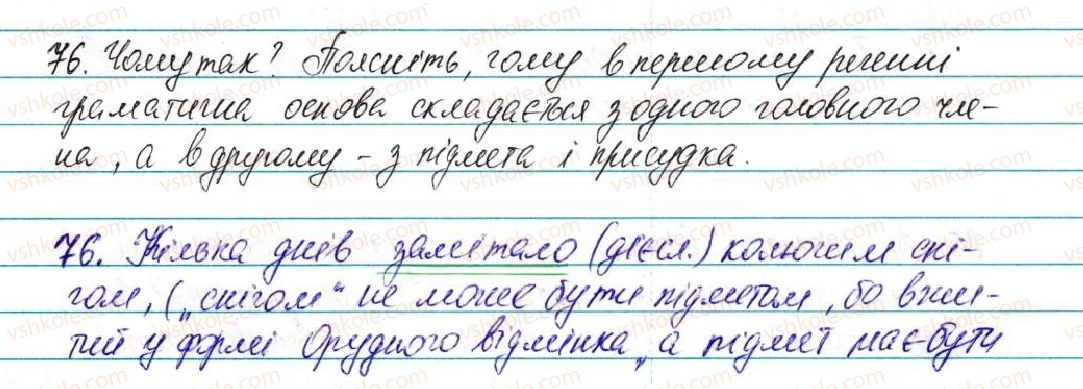 76. Чому так? Поясніть, чому в першому реченні
граматична основа складається з одного головного чле-
на, а в другому - з підмета і присудка.
76. Кілька днів замітало (дієсл.) колючим сні-
гом, („снігом“ не може бути підметом, бо вжи-
тий у формі Орудного відмінка, а підмет має бути